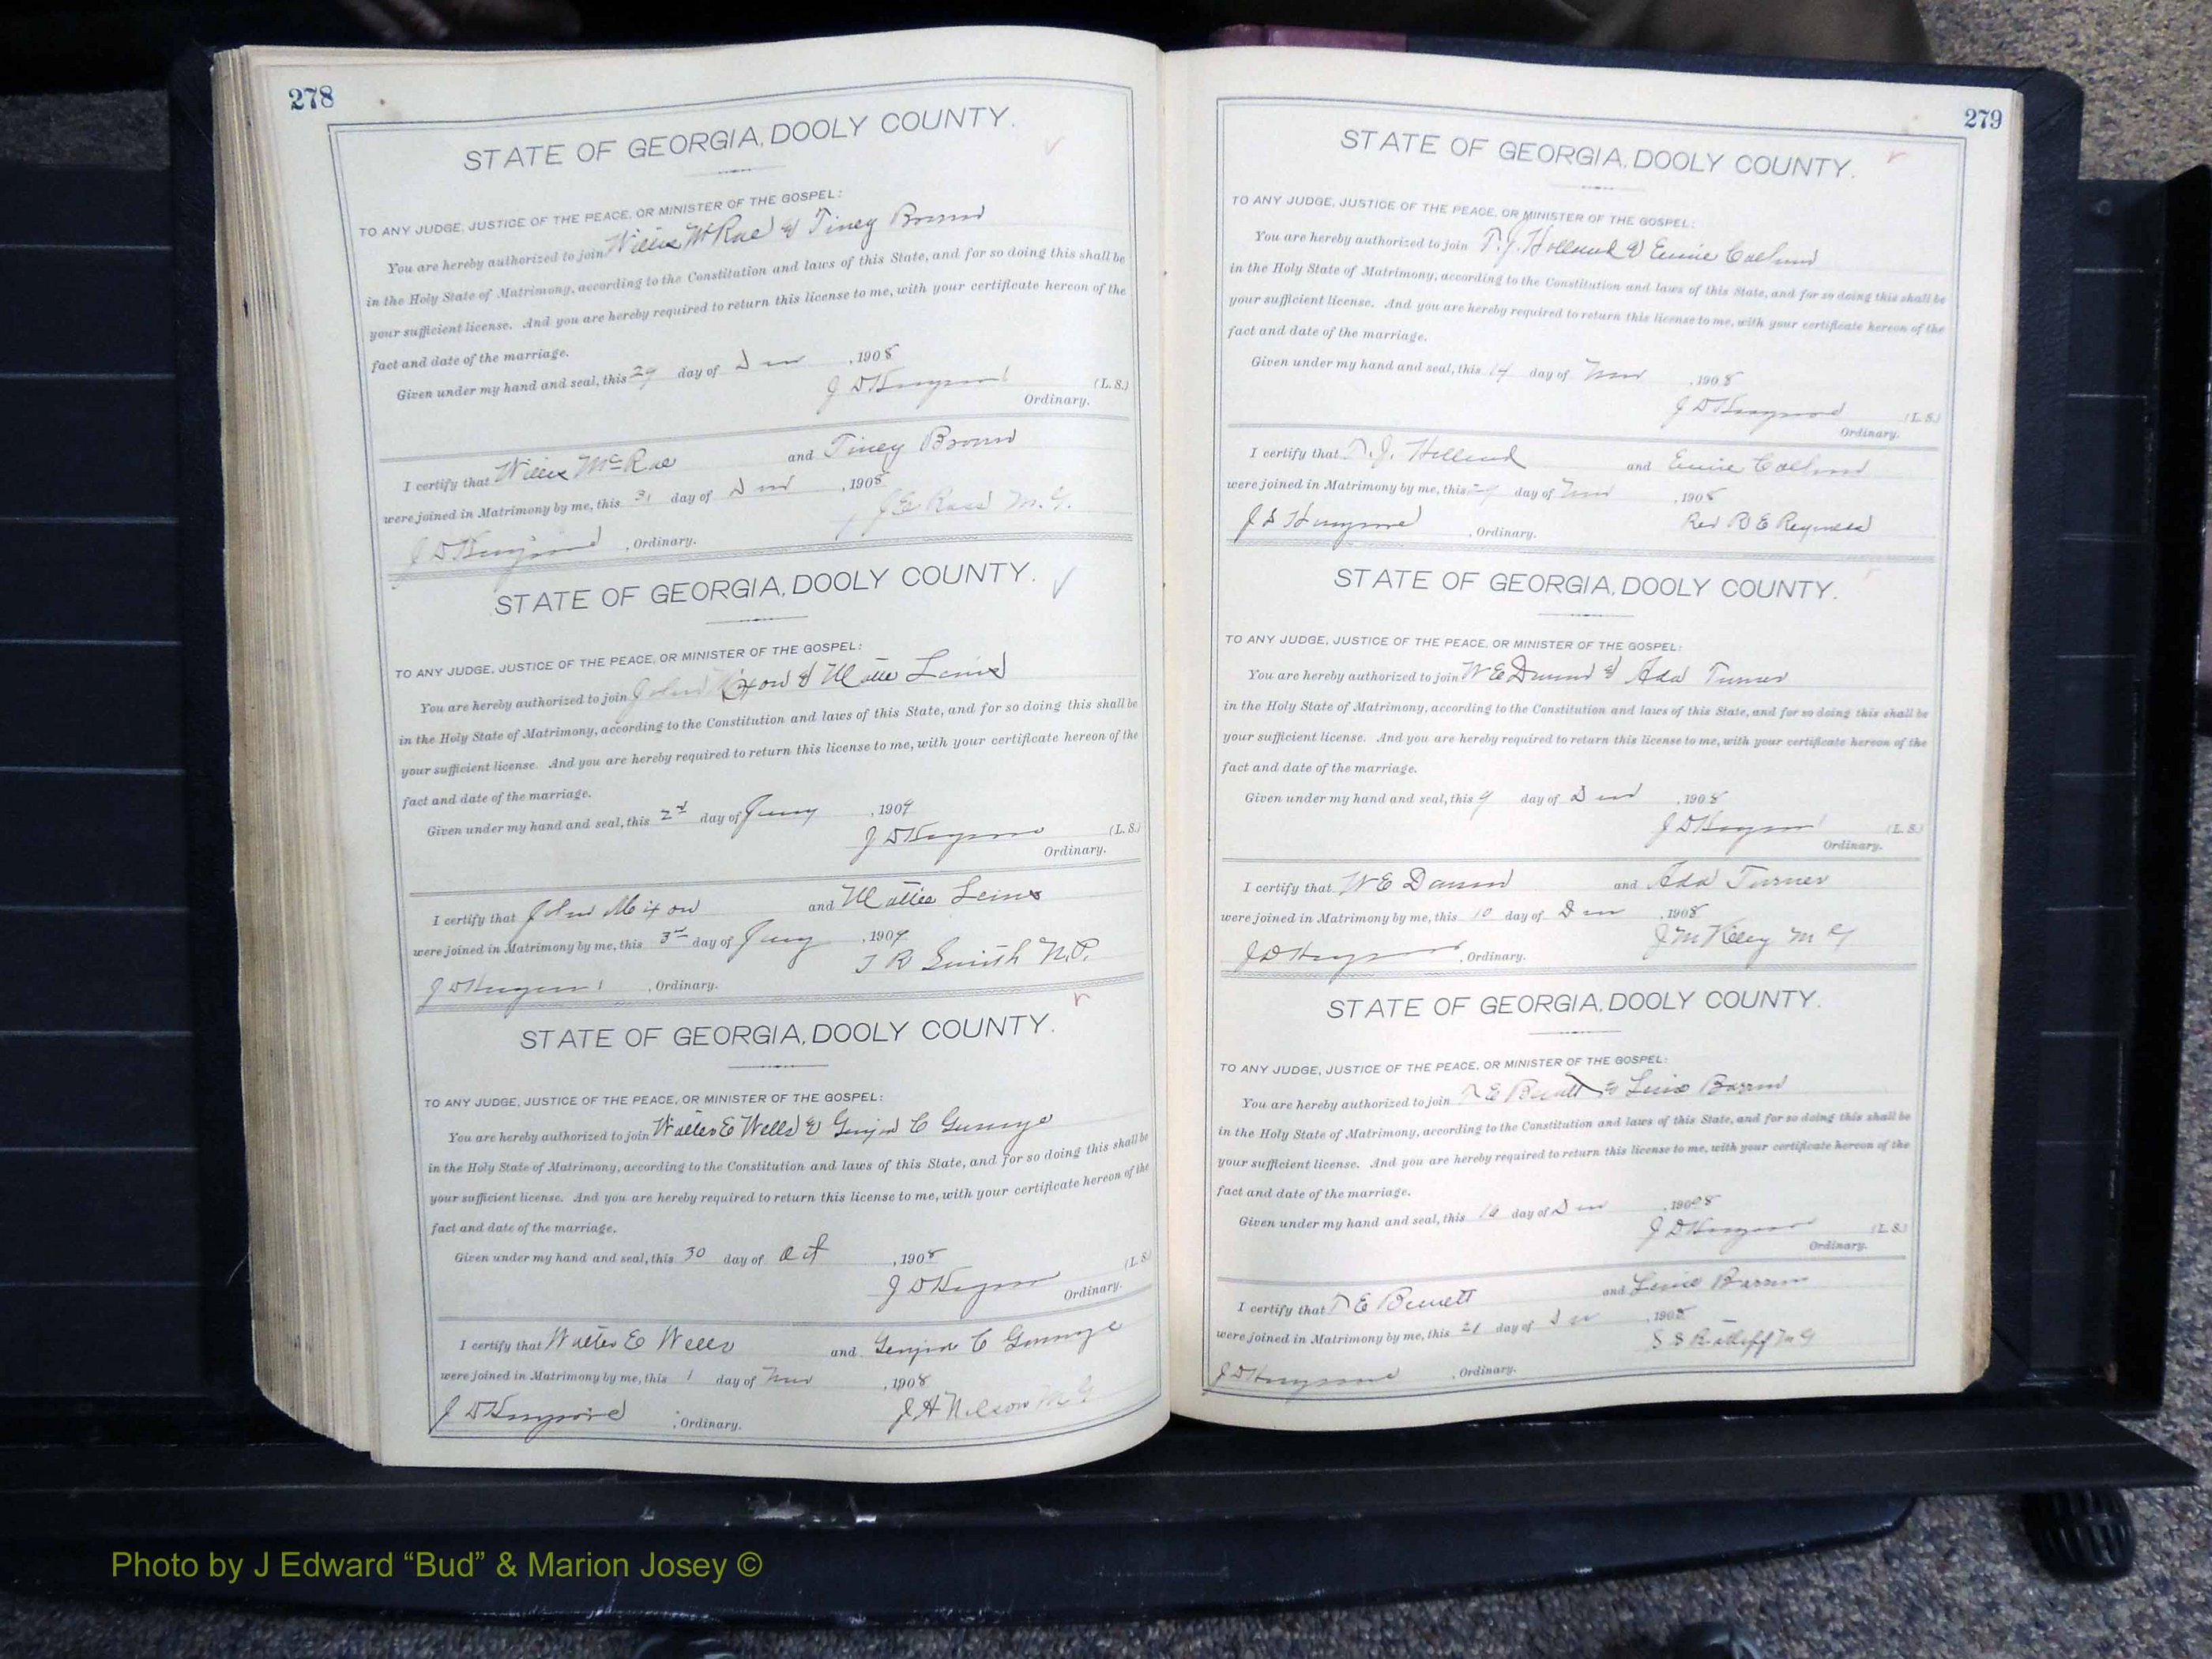 278
STATE OF GEORGIA, DOOLY COUNTY.
TO ANY JUDGE, JUSTICE OF THE PEACE, OR MINISTER OF THE GOSPEL:
You are hereby authorized to join Willie McRae & Tiney Brown
in the Holy State of Matrimony, according to the Constitution and laws of this State, and for so doing this shall be
your sufficient license. And you are hereby required to return this license to me, with your certificate hereon of the
fact and date of the marriage.
Given under my hand and seal, this 29 day of , 1908
J D (L. S.)
Ordinary.
I certify that Willie McRae and Tiney Brown
were joined in Matrimony by me, this 31 day of , 1908
J E Ross M.G.
J D , Ordinary.
STATE OF GEORGIA, DOOLY COUNTY.
TO ANY JUDGE, JUSTICE OF THE PEACE, OR MINISTER OF THE GOSPEL:
You are hereby authorized to join John Mixon & Mattie Lewis
in the Holy State of Matrimony, according to the Constitution and laws of this State, and for so doing this shall be
your sufficient license. And you are hereby required to return this license to me, with your certificate hereon of the
fact and date of the marriage.
Given under my hand and seal, this 2nd day of Jany , 1909
J D (L. S.)
Ordinary.
I certify that John Mixon and Mattie Lewis
were joined in Matrimony by me, this 3rd day of Jany , 1909
J R Smith N.P.
J D , Ordinary.
STATE OF GEORGIA, DOOLY COUNTY.
TO ANY JUDGE, JUSTICE OF THE PEACE, OR MINISTER OF THE GOSPEL:
You are hereby authorized to join Walter E Wells & C
in the Holy State of Matrimony, according to the Constitution and laws of this State, and for so doing this shall be
your sufficient license. And you are hereby required to return this license to me, with your certificate hereon of the
fact and date of the marriage.
Given under my hand and seal, this 30 day of Oct , 1908
J D (L. S.)
Ordinary.
I certify that Walter E Wells and C
were joined in Matrimony by me, this 1 day of Nov , 1908
J A Nelson M.G.
J D , Ordinary.
279
STATE OF GEORGIA, DOOLY COUNTY.
TO ANY JUDGE, JUSTICE OF THE PEACE, OR MINISTER OF THE GOSPEL:
You are hereby authorized to join T. J. Holland &
in the Holy State of Matrimony, according to the Constitution and laws of this State, and for so doing this shall be
your sufficient license. And you are hereby required to return this license to me, with your certificate hereon of the
fact and date of the marriage.
Given under my hand and seal, this 14 day of Nov , 1908
J D (L. S.)
Ordinary.
I certify that T. J. Holland and
were joined in Matrimony by me, this day of Nov , 1908
Rev R E Reynolds
J D , Ordinary.
STATE OF GEORGIA, DOOLY COUNTY.
TO ANY JUDGE, JUSTICE OF THE PEACE, OR MINISTER OF THE GOSPEL:
You are hereby authorized to join W E & Ada Turner
in the Holy State of Matrimony, according to the Constitution and laws of this State, and for so doing this shall be
your sufficient license. And you are hereby required to return this license to me, with your certificate hereon of the
fact and date of the marriage.
Given under my hand and seal, this 9 day of , 1908
J D (L. S.)
Ordinary.
I certify that W E and Ada Turner
were joined in Matrimony by me, this 10 day of , 1908
J M Kelley M G
J D , Ordinary.
STATE OF GEORGIA, DOOLY COUNTY.
TO ANY JUDGE, JUSTICE OF THE PEACE, OR MINISTER OF THE GOSPEL:
You are hereby authorized to join T E Bennett &
in the Holy State of Matrimony, according to the Constitution and laws of this State, and for so doing this shall be
your sufficient license. And you are hereby required to return this license to me, with your certificate hereon of the
fact and date of the marriage.
Given under my hand and seal, this day of , 1908
J D (L. S.)
Ordinary.
I certify that T E Bennett and
were joined in Matrimony by me, this 21 day of , 1908
S S Ratliff M G
J D , Ordinary.
Photo by J Edward “Bud” & Marion Josey ©